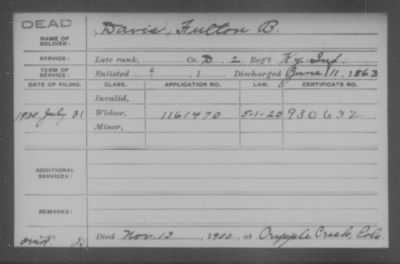 DEAD
NAME OF SOLDIER: Davis, Fulton B.
SERVICE: Late rank, Co. D, 2 Reg't Ky. Inf.
TERM OF SERVICE: Enlisted ?, 1 Discharged June 11, 1863
DATE OF FILING. CLASS. APPLICATION NO. LAW. CERTIFICATE NO.
Invalid,
1920 July 31 Widow, 1161470 5-1-20 930632
Minor,
ADDITIONAL SERVICES:
REMARKS:
Died Nov. 12, 1900, at Cripple Creek, Colo.